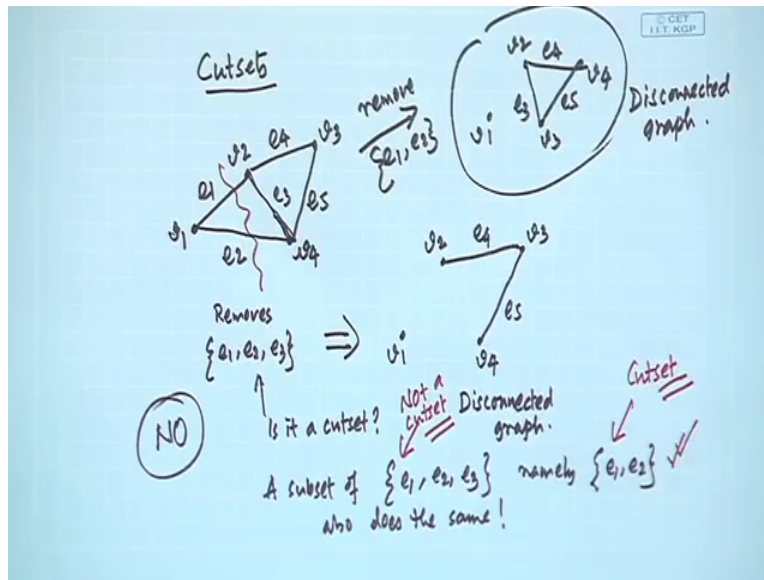 © CET
I.I.T. KGP
Cutsets
v2
e4
v3
e1
e3
e5
v1
e2
v4
remove
{e1, e2}
v2
e4
v4
e3
e5
v1
v3
Disconnected
graph.
Removes
{e1, e2, e3}
⇒
v2
e4
v3
e5
v1
v4
Is it a cutset?
NO
Not a
cutset
Disconnected
graph.
Cutset
A subset of {e1, e2, e3} namely {e1, e2}
also does the same!